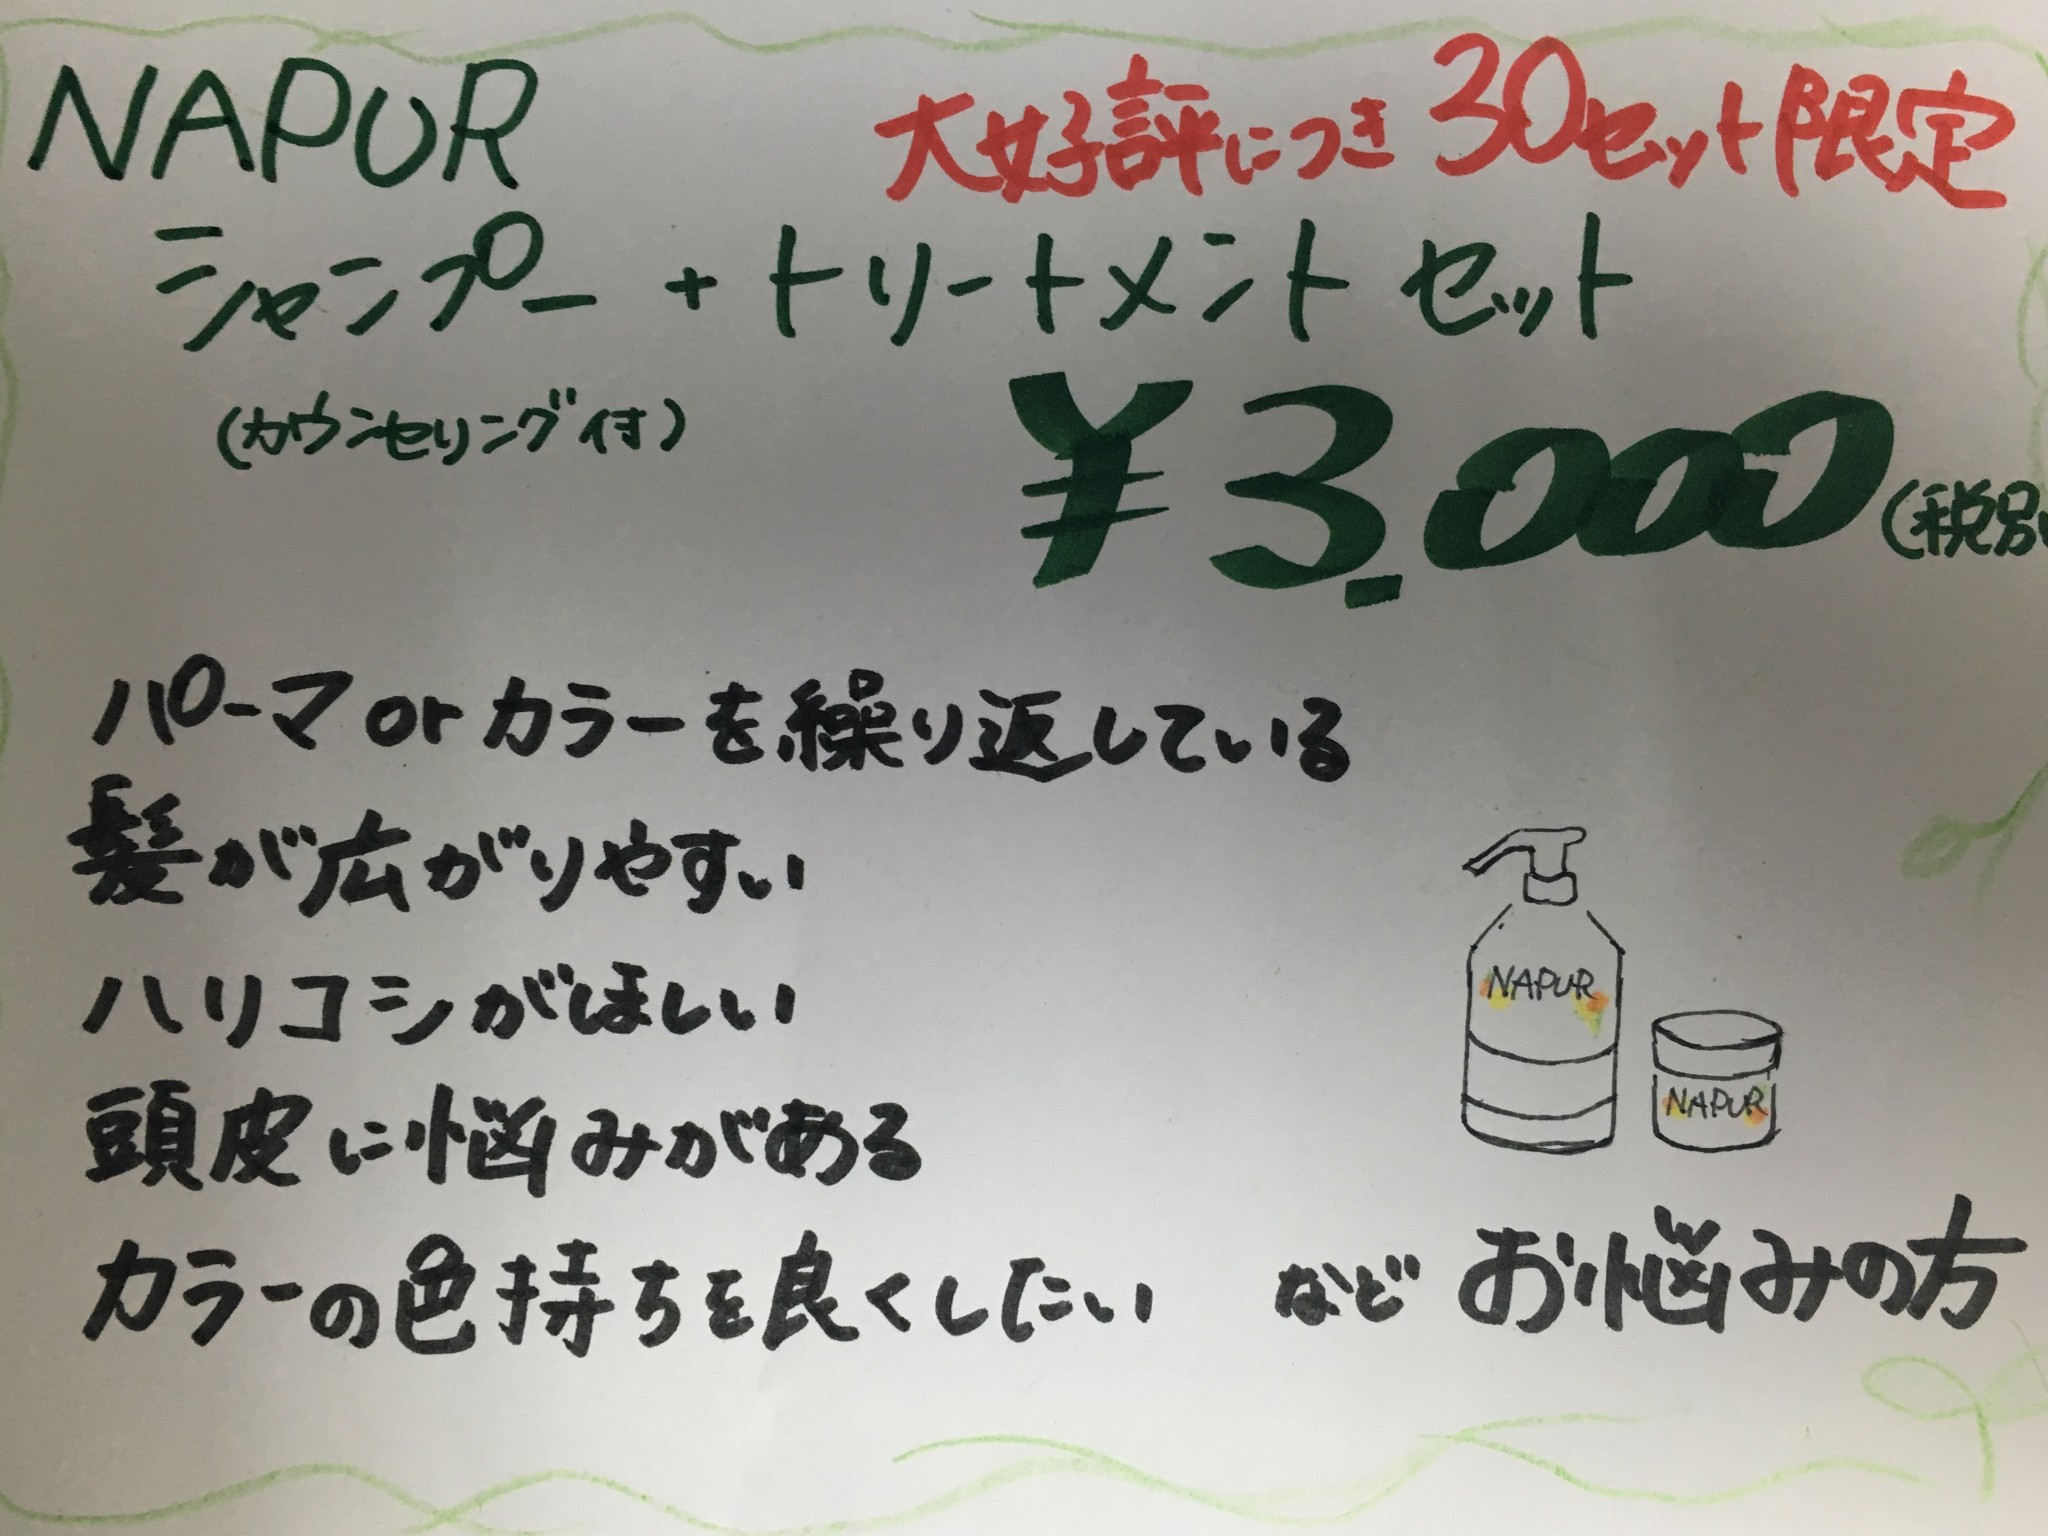 NAPUR
大好評につき30セット限定
シャンプー+トリートメントセット
(カウンセリング付)
¥3.000(税別)
パーマorカラーを繰り返している
髪が広がりやすい
ハリコシがほしい
頭皮に悩みがある
カラーの色持ちを良くしたい などお悩みの方
NAPUR
NAPUR